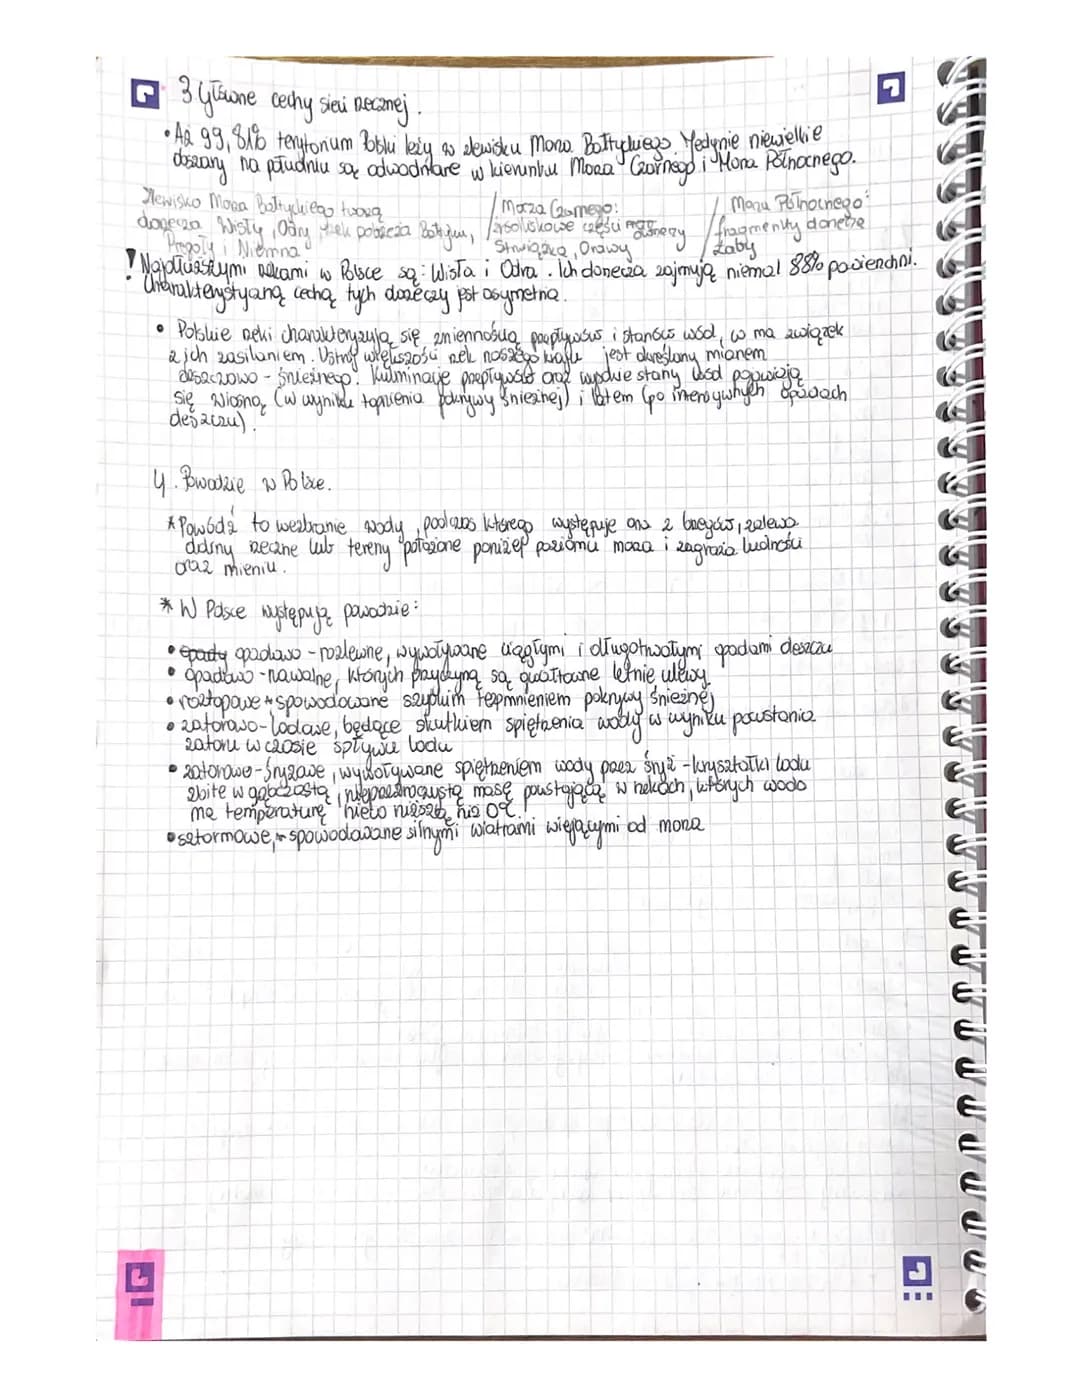 3 główne cechy sieci rzecznej.
• Aż 99,81% terytorium Polski leży w zlewisku Morza Bałtyckiego. Jedynie niewielkie
obszary na południu są odwadniane w kierunku Morza Czarnego i Morza Północnego.
Zlewisko Morza Bałtyckiego tworzą
dorzecza Wisły, Odry, rzek pobrzeża Bałtyku,
Pregoły i Niemna
/ Morza Czarnego:
źródliskowe części dorzeczy
Strwiąża, Orawy
/ Morza Północnego:
fragmenty dorzecza
Łaby
! Najdłuższymi rzekami w Polsce są: Wisła i Odra. Ich dorzecza zajmują niemal 88% powierzchni.
Charakterystyczną cechą tych dorzeczy jest asymetria.
• Polskie rzeki charakteryzują się zmiennością przepływów i stanów wód, co ma związek
z ich zasilaniem. Ustrój większości rzek naszego kraju jest określony mianem
deszczowo - śnieżnego. Kulminacje przepływów oraz wysokie stany wód pojawiają
się wiosną (w wyniku topnienia pokrywy śnieżnej) i latem (po intensywnych opadach
deszczu).
4. Powodzie w Polsce.
* Powódź to wezbranie wody, podczas którego występuje ona z brzegów, zalewa
doliny rzeczne lub tereny położone poniżej poziomu morza i zagraża ludności
oraz mieniu.
* W Polsce występują powodzie:
• opadowo - rozlewne, wywoływane ciągłymi i długotrwałymi opadami deszczu
• opadowo - nawalne, których przyczyną są gwałtowne letnie ulewy.
• roztopowe - spowodowane szybkim topnieniem pokrywy śnieżnej
• zatorowo - lodowe, będące skutkiem spiętrzenia wody w wyniku powstania
zatoru w czasie spływu lodu
• zatorowo - śryżowe, wywoływane spiętrzeniem wody przez śryż - kryształki lodu
zbite w gąbczastą, nieprzezroczystą masę powstającą w rzekach, których woda
ma temperaturę nieco niższą niż 0°C.
• sztormowe, - spowodowane silnymi wiatrami wiejącymi od morza